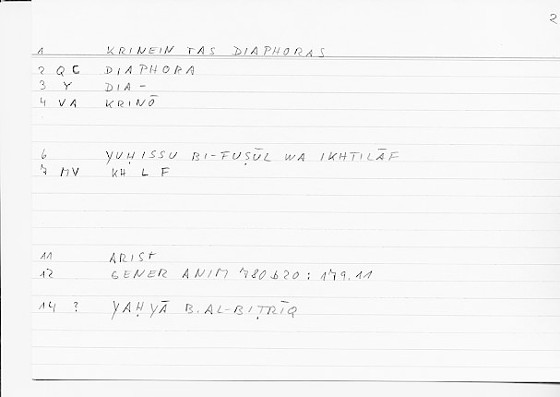 2
1 KRINEIN TAS DIAPHORAS
2 QC DIAPHORA
3 Y DIA-
4 VA KRINŌ
6 YUḤISSU BI-FUṢŪL WA IKHTILĀF
7 MV KH L F
11 ARIST
12 GENER ANIM 780b20 : 179.11
14 ? YAḤYĀ B. AL-BIṬRĪQ